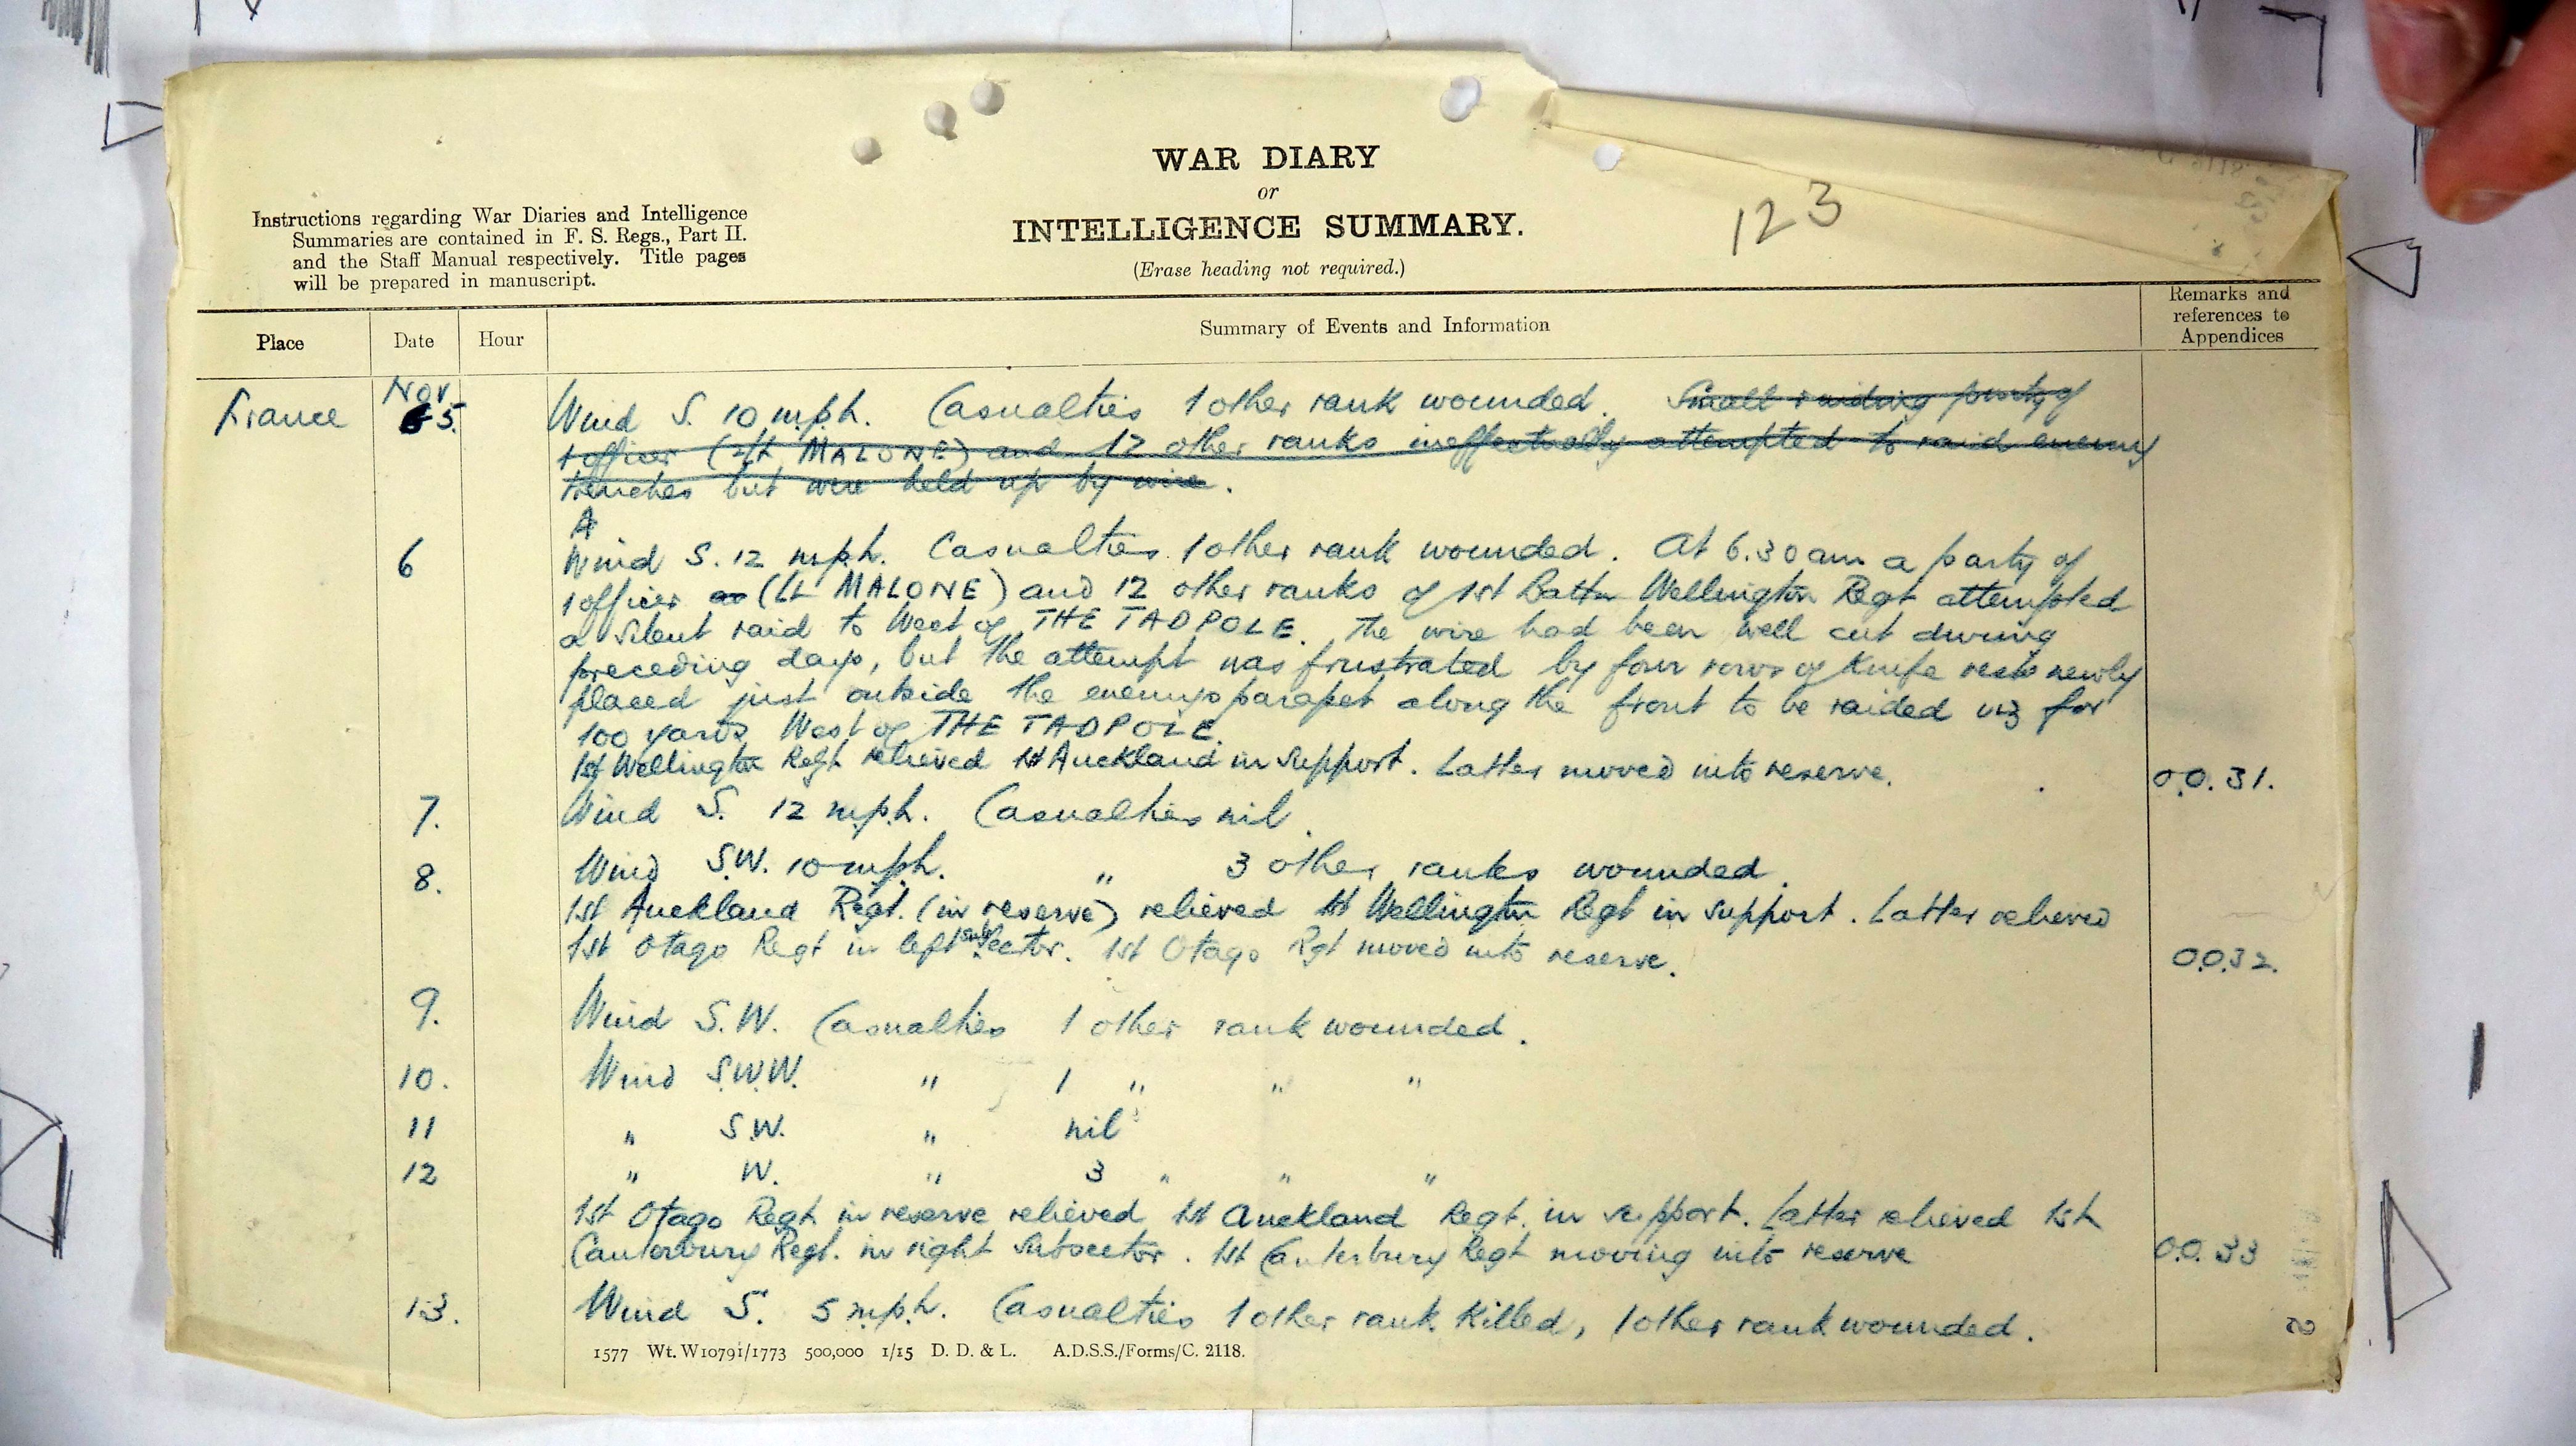 WAR DIARY
or
INTELLIGENCE SUMMARY.
(Erase heading not required.)
123
Instructions regarding War Diaries and Intelligence
Summaries are contained in F. S. Regs., Part II.
and the Staff Manual respectively. Title pages
will be prepared in manuscript.
Place Date Hour Summary of Events and Information Remarks and references to Appendices
France Nov. 5. Wind S. 10 m.p.h. Casualties 1 other rank wounded. Small raiding party of
1 officer (Lt MALONE) and 12 other ranks ineffectually attempted to raid enemy
trenches but were held up by wire.
A
6 Wind S. 12 mp.h. Casualties 1 other rank wounded. At 6.30 am a party of
1 officer (Lt MALONE) and 12 other ranks of 1st Battn Wellington Regt attempted
a silent raid to West of THE TADPOLE. The wire had been well cut during
preceding days, but the attempt was frustrated by four rows of Knife rests newly
placed just outside the enemys parapet along the front to be raided viz for
100 yards West of THE TADPOLE.
1st Wellington Regt relieved 1st Auckland in support. Latter moved into reserve. O.O. 31.
7. Wind S. 12 mp.h. Casualties nil.
8. Wind S.W. 10 mph. " 3 other ranks wounded.
1st Auckland Regt. (in reserve) relieved 1st Wellington Regt in support. Latter relieved
1st Otago Regt in left sub sector. 1st Otago Rgt moved into reserve. O.O.32.
9. Wind S.W. Casualties 1 other rank wounded.
10. Wind S.W.W. " 1 " " "
11 " S.W. " nil
12 " W. " 3 " " "
1st Otago Regt in reserve relieved 1st Auckland Regt. in support. Latter relieved 1st
Canterbury Regt. in right subsector. 1st Canterbury Regt moving into reserve O.O. 33
13. Wind S. 5 m.p.h. Casualties 1 other rank killed, 1 other rank wounded.
1577 Wt. W10791/1773 500,000 1/15 D. D. & L. A.D.S.S./Forms/C. 2118.